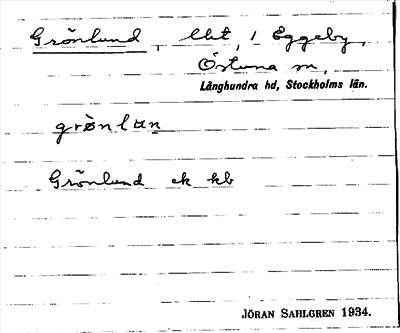 Grönlund, lht, i Eggeby,
Östuna sn,
Långhundra hd, Stockholms län.
grö̀nlun
Grönlund ek kb
JÖRAN SAHLGREN 1934.